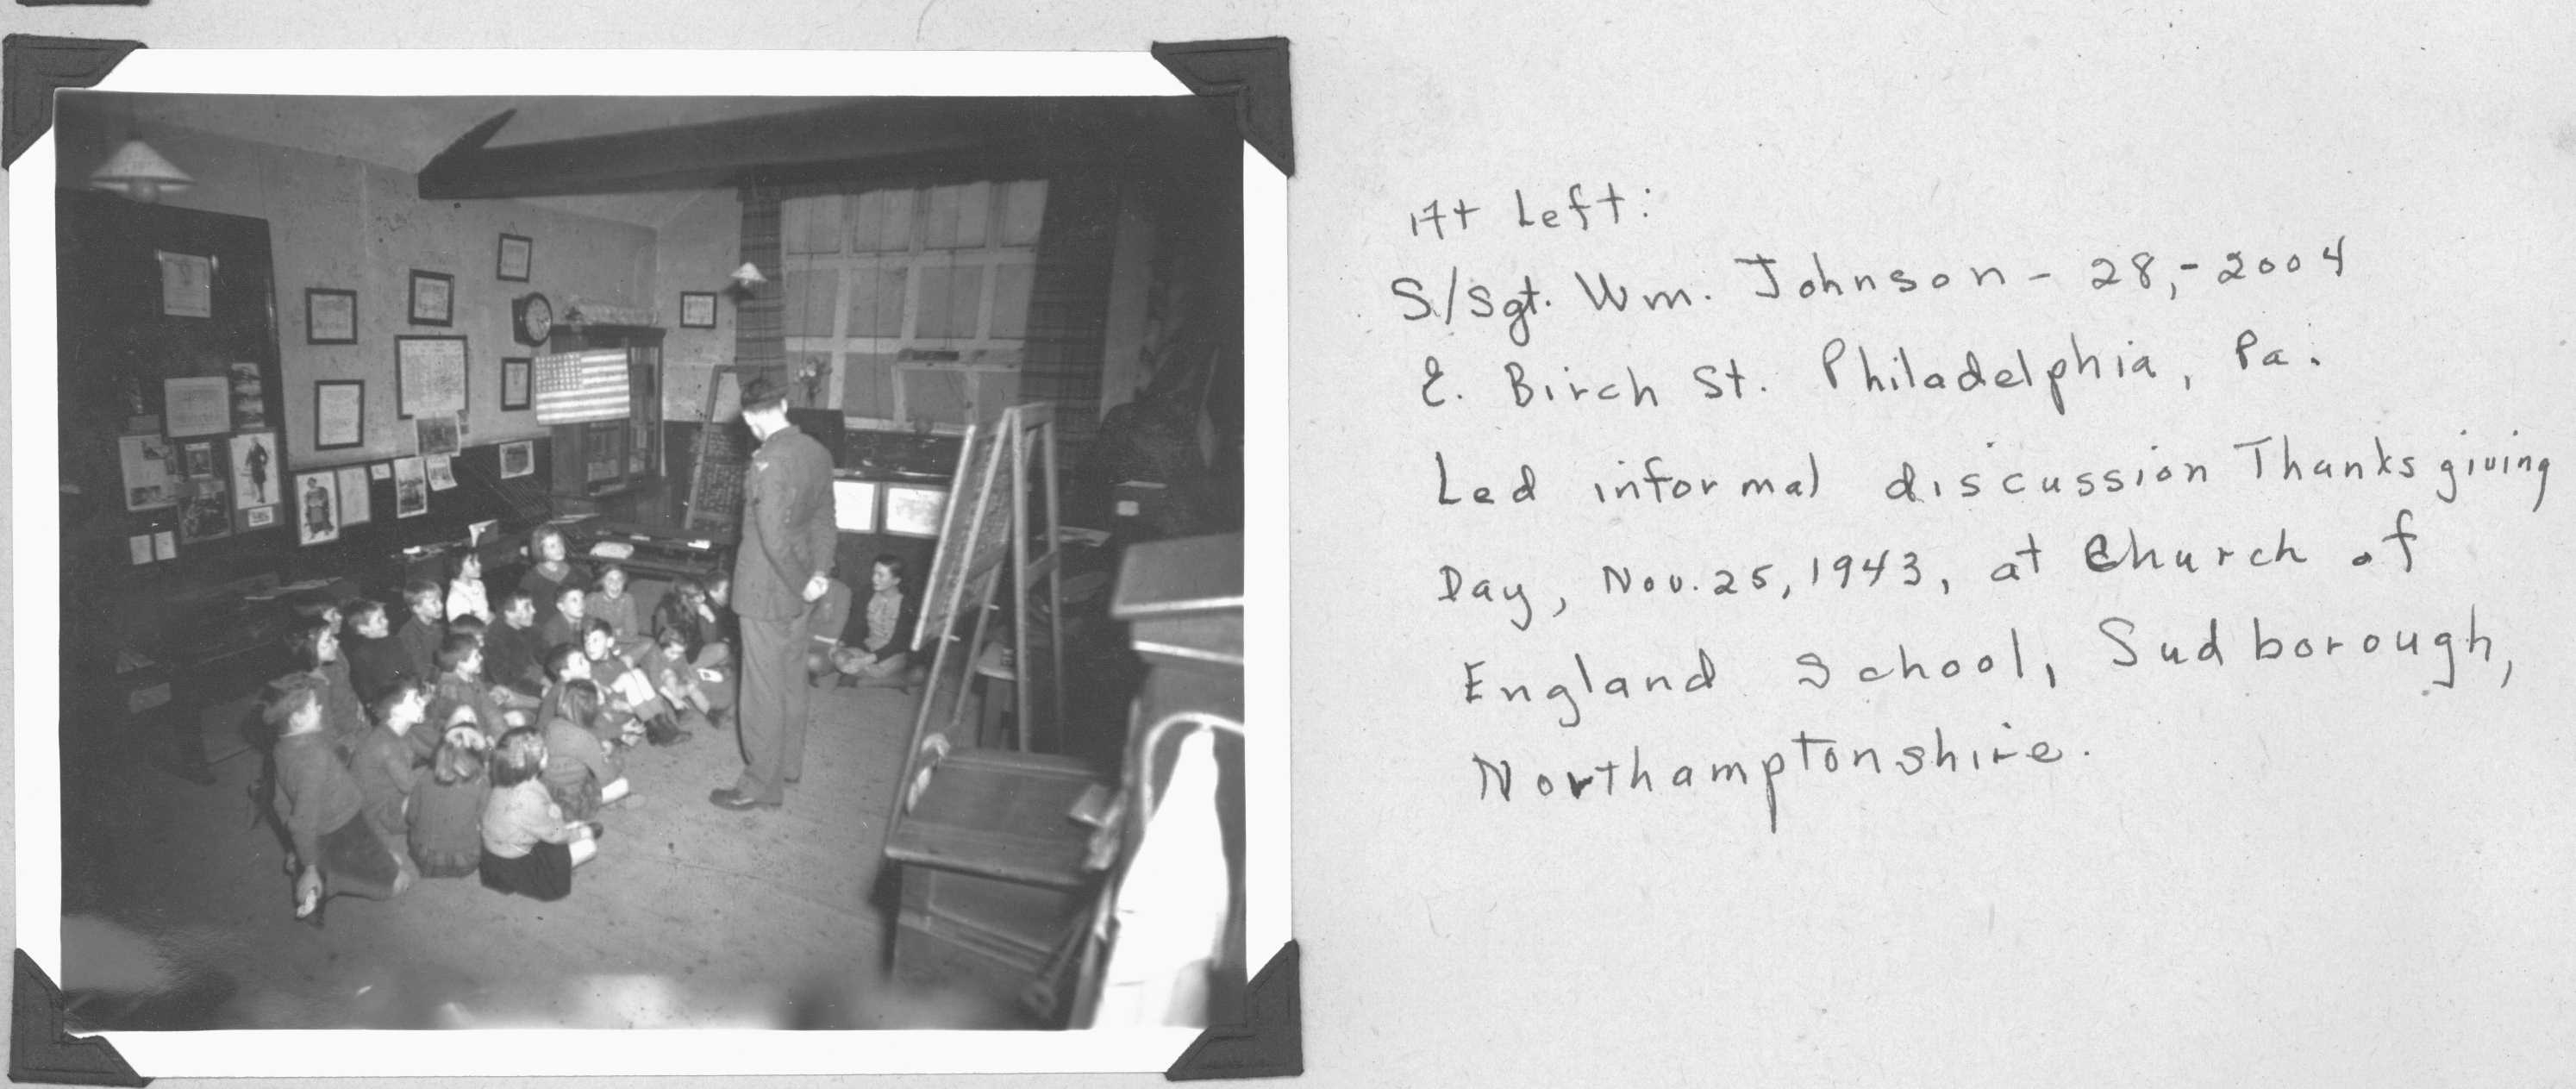 At Left:
S/Sgt. Wm. Johnson - 28, - 2004
E. Birch St. Philadelphia, Pa.
Led informal discussion Thanksgiving
Day, Nov. 25, 1943, at Church of
England School, Sudborough,
Northamptonshire.